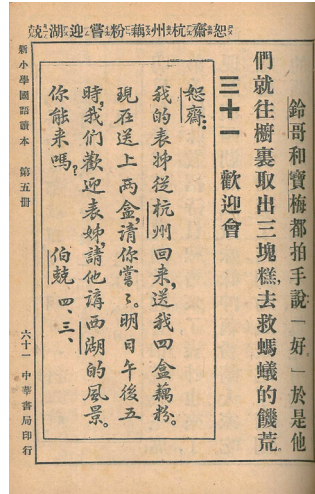 恕齋杭州藕粉嘗迎湖兢
鈴哥和寶梅都拍手說「好」於是他
們就往櫥裏取出三塊糕，去救螞蟻的饑荒。
三十一 歡迎會
恕齋：
我的表姊從杭州回來，送我四盒藕粉。
現在送上兩盒，請你嘗嘗。明日午後五
時，我們歡迎表姊，請他講西湖的風景。
你能來嗎？
伯兢 四、三、
新小學國語讀本 第五冊
六十一 中華書局印行